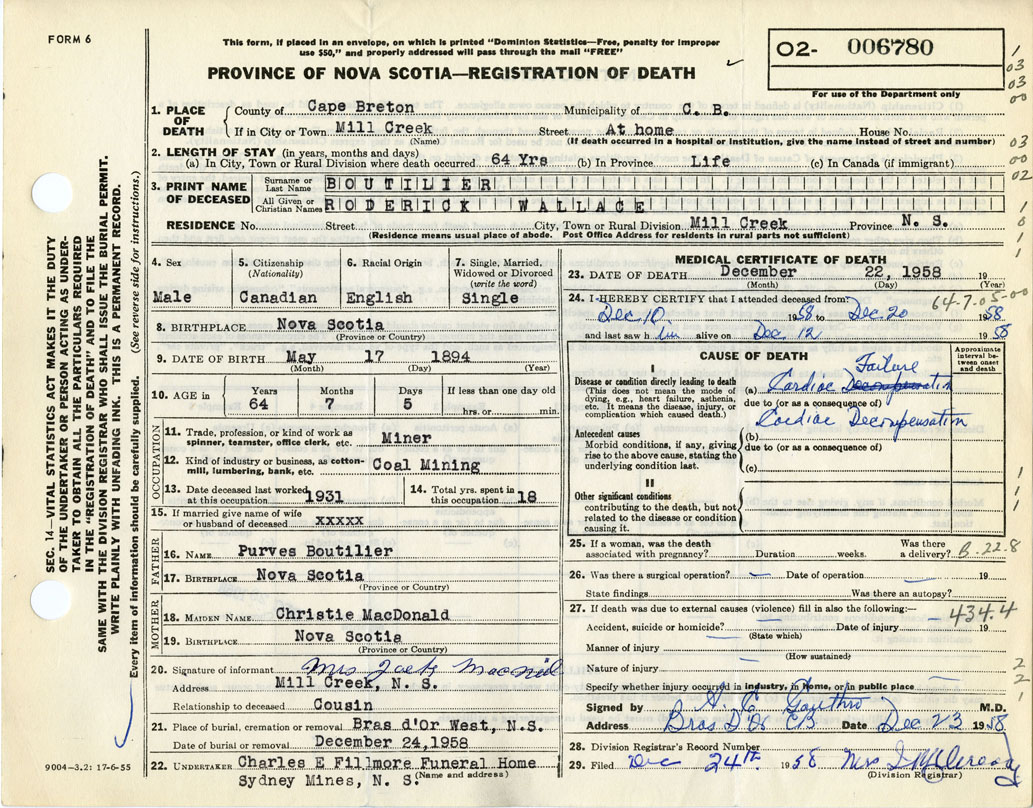 FORM 6
This form, if placed in an envelope, on which is printed "Dominion Statistics—Free, penalty for improper
use $50," and properly addressed will pass through the mail "FREE"
PROVINCE OF NOVA SCOTIA—REGISTRATION OF DEATH
02- 006780
For use of the Department only
1
03
03
00
03
00
02
1
0
1
1
1. PLACE OF DEATH
County of Cape Breton Municipality of C. B.
If in City or Town Mill Creek Street At home House No.
(Name) (If death occurred in a hospital or institution, give the name instead of street and number)
2. LENGTH OF STAY (in years, months and days)
(a) In City, Town or Rural Division where death occurred 64 Yrs (b) In Province Life (c) In Canada (if immigrant)
3. PRINT NAME OF DECEASED
Surname or Last Name BOUTILIER
All Given or Christian Names RODERICK WALLACE
RESIDENCE No. Street City, Town or Rural Division Mill Creek Province N. S.
(Residence means usual place of abode. Post Office Address for residents in rural parts not sufficient)
4. Sex
Male
5. Citizenship
(Nationality)
Canadian
6. Racial Origin
English
7. Single, Married,
Widowed or Divorced
(write the word)
Single
8. BIRTHPLACE Nova Scotia
(Province or Country)
9. DATE OF BIRTH May 17 1894
(Month) (Day) (Year)
10. AGE in
Years Months Days If less than one day old
64 7 5 hrs. or min.
OCCUPATION
11. Trade, profession, or kind of work as
spinner, teamster, office clerk, etc. Miner
12. Kind of industry or business, as cotton-
mill, lumbering, bank, etc. Coal Mining
13. Date deceased last worked
at this occupation 1931
14. Total yrs. spent in
this occupation 18
15. If married give name of wife
or husband of deceased xxxxx
FATHER
16. NAME Purves Boutilier
17. BIRTHPLACE Nova Scotia
(Province or Country)
MOTHER
18. MAIDEN NAME Christie MacDonald
19. BIRTHPLACE Nova Scotia
(Province or Country)
20. Signature of informant Mrs Jack MacNeil
Address Mill Creek, N. S.
Relationship to deceased Cousin
21. Place of burial, cremation or removal Bras d'Or West, N.S.
Date of burial or removal December 24,1958
22. UNDERTAKER Charles E Fillmore Funeral Home
Sydney Mines, N. S. (Name and address)
MEDICAL CERTIFICATE OF DEATH
23. DATE OF DEATH December 22, 1958 19
(Month) (Day) (Year)
64-7-05-00
24. I HEREBY CERTIFY that I attended deceased from
Dec 10 1958 to Dec 20 1958
and last saw him alive on Dec 12 1958
CAUSE OF DEATH
Approximate interval between onset and death
I
Disease or condition directly leading to death
(This does not mean the mode of
dying, e.g., heart failure, asthenia,
etc. It means the disease, injury, or
complication which caused death.)
Failure
(a) Cardiac Decompensation
due to (or as a consequence of)
Cardiac Decompensation
Antecedent causes
Morbid conditions, if any, giving
rise to the above cause, stating the
underlying condition last.
(b)
due to (or as a consequence of)
(c)
II
Other significant conditions
contributing to the death, but not
related to the disease or condition
causing it.
1
1
1
25. If a woman, was the death
associated with pregnancy? Duration weeks. Was there a delivery?
B.22.8
26. Was there a surgical operation? Date of operation 19
State findings Was there an autopsy?
27. If death was due to external causes (violence) fill in also the following:—
434.4
Accident, suicide or homicide? Date of injury 19
(State which)
Manner of injury
(How sustained)
Nature of injury
Specify whether injury occurred in industry, in home, or in public place
2
2
1
Signed by M.D.
Address Bras D'Or CB Date Dec 23 1958
28. Division Registrar's Record Number
29. Filed Dec 24th 1958 Mrs
(Division Registrar)
SEC. 14—VITAL STATISTICS ACT MAKES IT THE DUTY
OF THE UNDERTAKER OR PERSON ACTING AS UNDER-
TAKER TO OBTAIN ALL THE PARTICULARS REQUIRED
IN THE "REGISTRATION OF DEATH" AND TO FILE THE
SAME WITH THE DIVISION REGISTRAR WHO SHALL ISSUE THE BURIAL PERMIT.
WRITE PLAINLY WITH UNFADING INK. THIS IS A PERMANENT RECORD.
Every item of information should be carefully supplied. (See reverse side for instructions.)
9004—3.2: 17-6-55